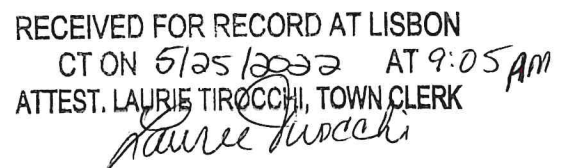 RECEIVED FOR RECORD AT LISBON
CT ON 5/25/2022 AT 9:05 AM
ATTEST. LAURIE TIROCCHI, TOWN CLERK
Laurie Tirocchi